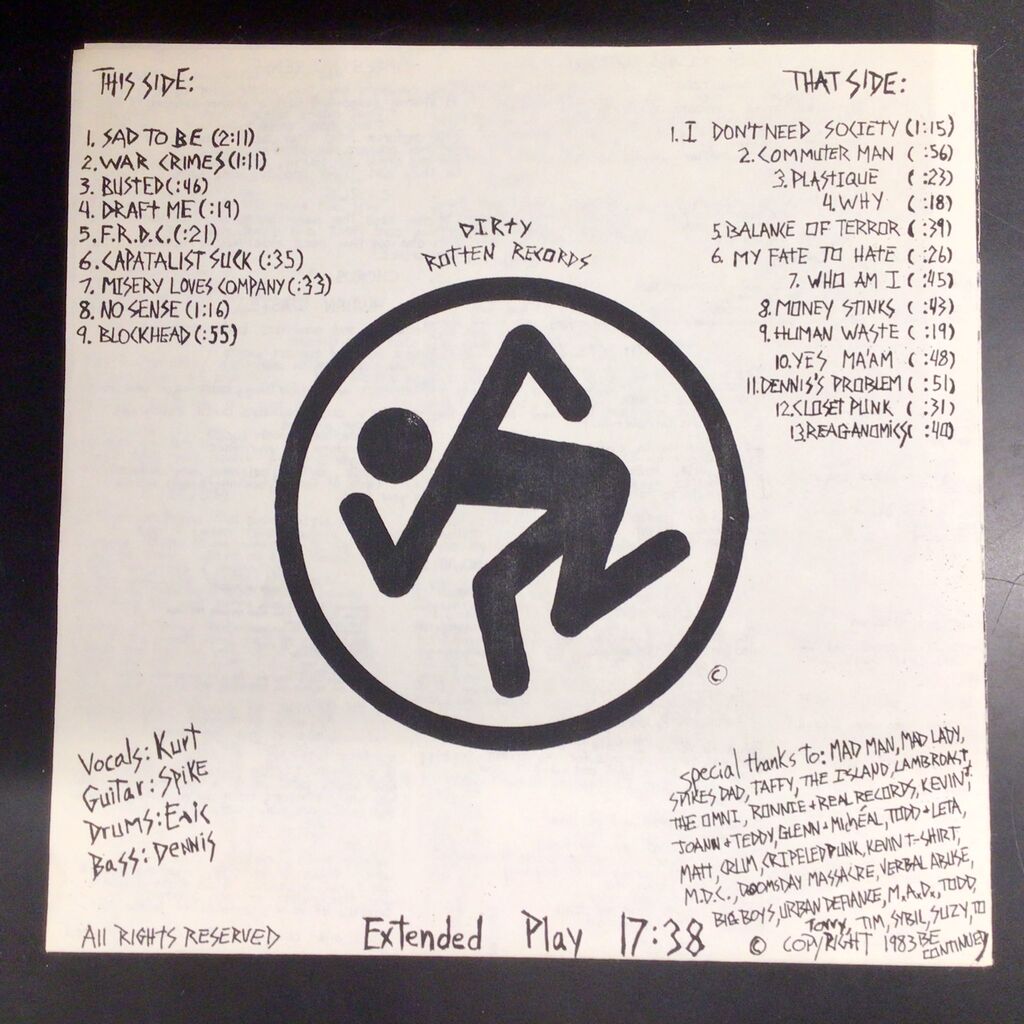 THIS SIDE:
1. SAD TO BE (2:11)
2. WAR CRIMES (1:11)
3. BUSTED (:46)
4. DRAFT ME (:19)
5. F.R.D.C. (:21)
6. CAPATALIST SUCK (:35)
7. MISERY LOVES COMPANY (:33)
8. NO SENSE (1:16)
9. BLOCKHEAD (:55)
THAT SIDE:
1. I DON'T NEED SOCIETY (1:15)
2. COMMUTER MAN ( :56)
3. PLASTIQUE ( :23)
4. WHY ( :18)
5. BALANCE OF TERROR ( :39)
6. MY FATE TO HATE ( :26)
7. WHO AM I ( :45)
8. MONEY STINKS ( :43)
9. HUMAN WASTE ( :19)
10. YES MA'AM ( :48)
11. DENNIS'S PROBLEM ( :51)
12. CLOSET PUNK ( :31)
13. REAGANOMICS ( :40)
DIRTY
ROTTEN RECORDS
©
Vocals: Kurt
Guitar: Spike
Drums: Eric
Bass: Dennis
special thanks to: MAD MAN, MAD LADY,
SPIKES DAD, TAFFY, THE ISLAND, LAMBROAST,
THE OMNI, RONNIE + REAL RECORDS, KEVIN J.
JOANN + TEDDY, GLENN + MICHÉAL, TODD + LETA,
MATT, CRUM, CRIPELED PUNK, KEVIN T-SHIRT,
M.D.C., DOOMSDAY MASSACRE, VERBAL ABUSE,
BIG BOYS, URBAN DEFIANCE, M.A.D., TODD,
TONY, TIM, SYBIL, SUZY, TO
BE
CONTINUED
All RIGHTS RESERVED
Extended Play 17:38
© COPYRIGHT 1983